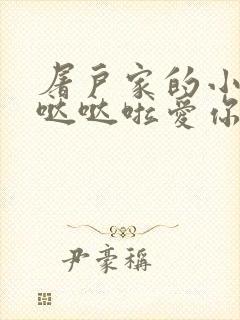 屠户家的小
哒哒啦爱你
尹豪稱